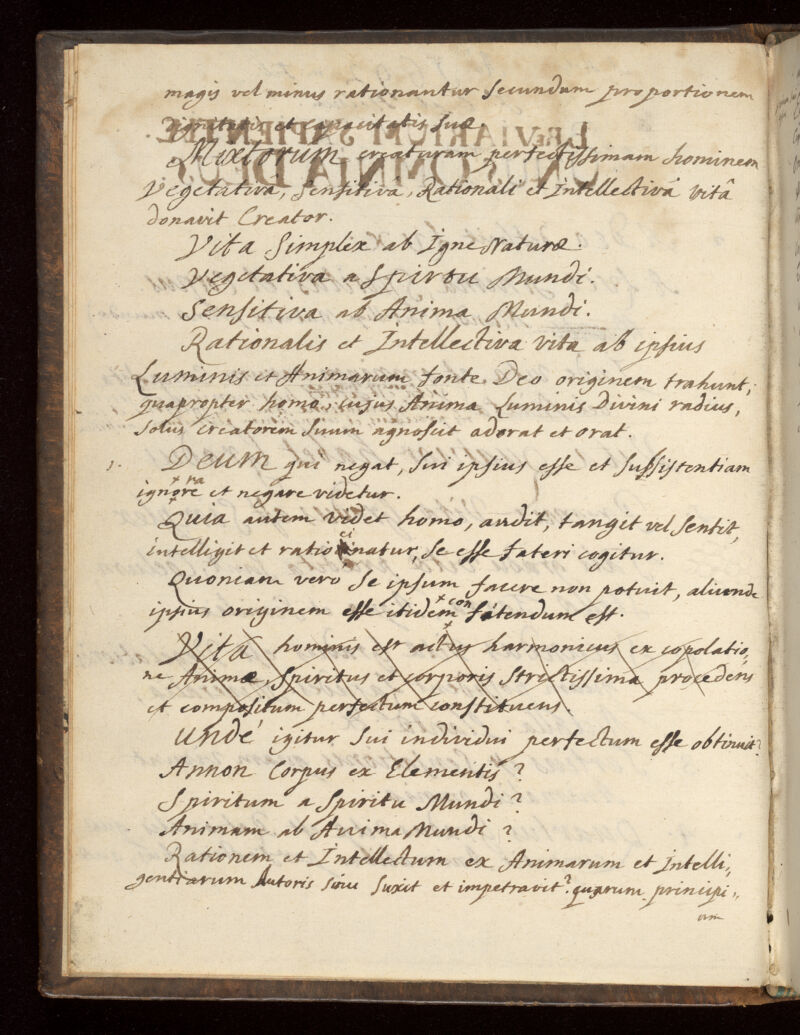 magis vel minus rationantur secundum proportionem
et capacitatis suæ.
Mixtorum creaturam perfectissimam hominem
Vegetativa, Sensitiva, Rationali et Intellectivâ vitâ
donavit Creator.
Vita Simplex ab Igne Naturæ.
Vegetativa a Spiritu Mundi.
Sensitiva ab Anima Mundi.
Rationalis et Intellectiva vita ab ipsius
Luminis et Animarum fonte Deo originem trahunt;
quapropter homo, cujus Anima Luminis Divini radius,
solus creatorem suum agnoscit adorat et orat.
1. Deum qui negat, sui ipsius esse et subsistentiam
ra
ignore et negare videtur.
Quia autem videt homo, audit, tangit vel sentit,
ci
intelligit et rationatur, se esse fateri cogitur.
Quoniam vero se ipsum facere non potuit, aliunde
con
ipsius originem esse itidem fatendum est.
Vita hominis est actus harmonicus ex copolatio„
ne Animæ, Spiritus et corporis strictissima procedens
et compositum perfectum constituens.
Unde igitur sui individui perfectum esse obtinuit?
Annon Corpus ex Elementis?
Spiritum a Spiritu Mundi?
Animam ab Anima Mundi?
Rationem et Intellectum ex Animarum et Intelli„
gentiarum Autoris sinu suxit et impetravit? quarum principi„
um